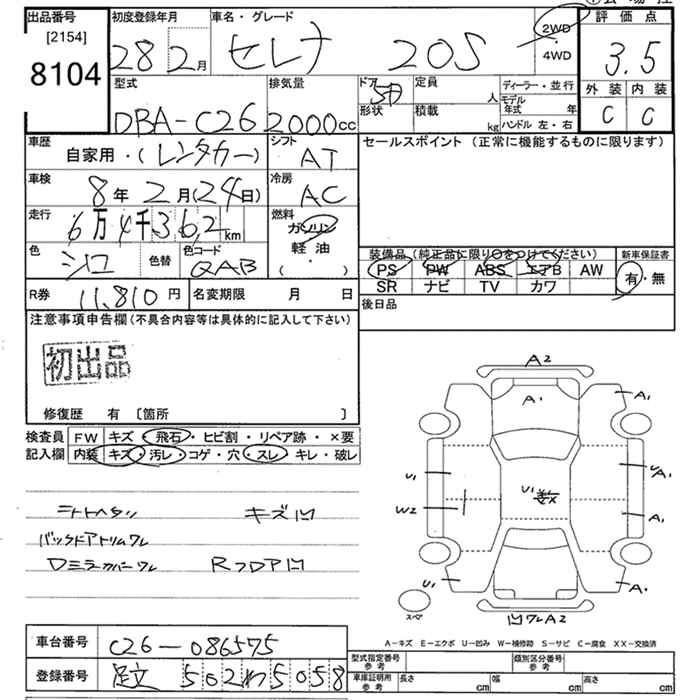 出品番号 初度登録年月 車名・グレード 評価点
[2154] 28年2月 セレナ 20S 2WD・4WD 3.5
8104
型式 排気量 ドア 5D 定員 人 ディーラー・並行 外装 内装
DBA-C26 2000cc 形状 積載 kg モデル年式 年 C C
ハンドル 左・右
車歴 自家用・(レンタカー) シフト AT セールスポイント (正常に機能するものに限ります)
車検 8年2月(24日) 冷房 AC
走行 6万4千362km 燃料 ガソリン
軽油
( ・ )
色 シロ 色替 色コード QAB
装備品(純正品に限り○をつけてください) 新車保証書
PS PW ABS エアB AW 有・無
SR ナビ TV カワ
R券 11,810円 名変期限 月 日 後日品
注意事項申告欄(不具合内容等は具体的に記入して下さい)
初出品
修復歴 有 [箇所 ]
検査員 FW キズ・飛石・ヒビ割・リペア跡・×要
記入欄 内装 キズ・汚レ・コゲ・穴・スレ・キレ・破レ
シートヘタリ キズ凹
バックドアトリムワレ
Dミラーカバーワレ Rフロア凹
A2
A1
A1
U1
UA1
U1
W2
A1
U1
A1
スペア
凹ワレA2
A-キズ E-エクボ U-凹み W-補修跡 S-サビ C-腐食 XX-交換済
車台番号 C26-086575
登録番号 足立 502わ5058
型式指定番号 参考 類別区分番号 参考
車庫証明用 参考 長さ cm 幅 cm 高さ cm